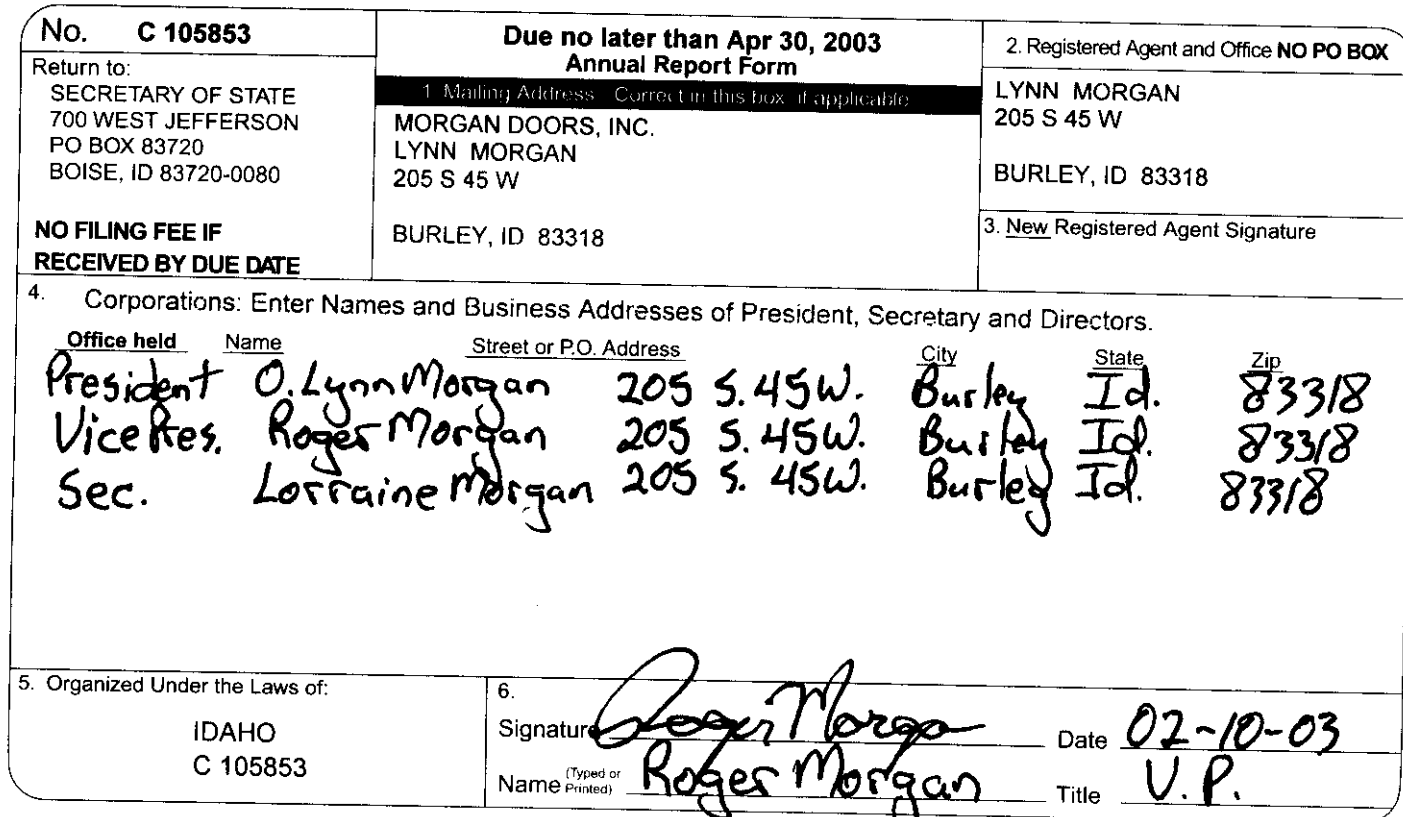 No. C 105853
Return to:
SECRETARY OF STATE
700 WEST JEFFERSON
PO BOX 83720
BOISE, ID 83720-0080
NO FILING FEE IF
RECEIVED BY DUE DATE
Due no later than Apr 30, 2003
Annual Report Form
1. Mailing Address: Correct in this box if applicable
MORGAN DOORS, INC.
LYNN MORGAN
205 S 45 W
BURLEY, ID 83318
2. Registered Agent and Office NO PO BOX
LYNN MORGAN
205 S 45 W
BURLEY, ID 83318
3. New Registered Agent Signature
4. Corporations: Enter Names and Business Addresses of President, Secretary and Directors.
Office held Name Street or P.O. Address City State Zip
President O. Lynn Morgan 205 S. 45W. Burley Id. 83318
Vice Pres. Roger Morgan 205 S. 45W. Burley Id. 83318
Sec. Lorraine Morgan 205 S. 45W. Burley Id. 83318
5. Organized Under the Laws of:
IDAHO
C 105853
6.
Signature Roger Morgan Date 02-10-03
Name (Typed or Printed) Roger Morgan Title V.P.